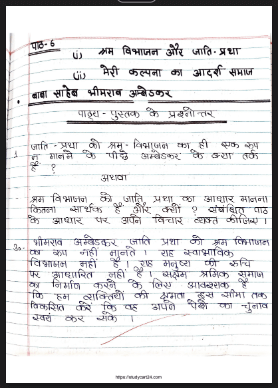 पाठ-6
(i) श्रम विभाजन और जाति-प्रथा
(ii) मेरी कल्पना का आदर्श समाज
• बाबा साहेब भीमराव अम्बेडकर
पाठ्य-पुस्तक के प्रश्नोत्तर
जाति-प्रथा को श्रम-विभाजन का ही एक रूप
न मानने के पीछे अम्बेडकर के क्या तर्क
है ?
अथवा
श्रम विभाजन को जाति प्रथा का आधार मानना
कितना सार्थक है और क्यों ? संबंधित पाठ
के आधार पर अपने विचार व्यक्त कीजिए।
उ०- भीमराव अम्बेडकर जाति प्रथा को श्रम विभाजन
का रूप नहीं मानते। यह स्वाभाविक
विभाजन नहीं है। यह मनुष्य की रुचि
पर आधारित नहीं है। सक्षम श्रमिक समाज
का निर्माण करने के लिए आवश्यक है
कि हम व्यक्तियों की क्षमता इस सीमा तक
विकसित करें कि वह अपने पेशे का चुनाव
स्वयं कर सके।
https://studycart24.com